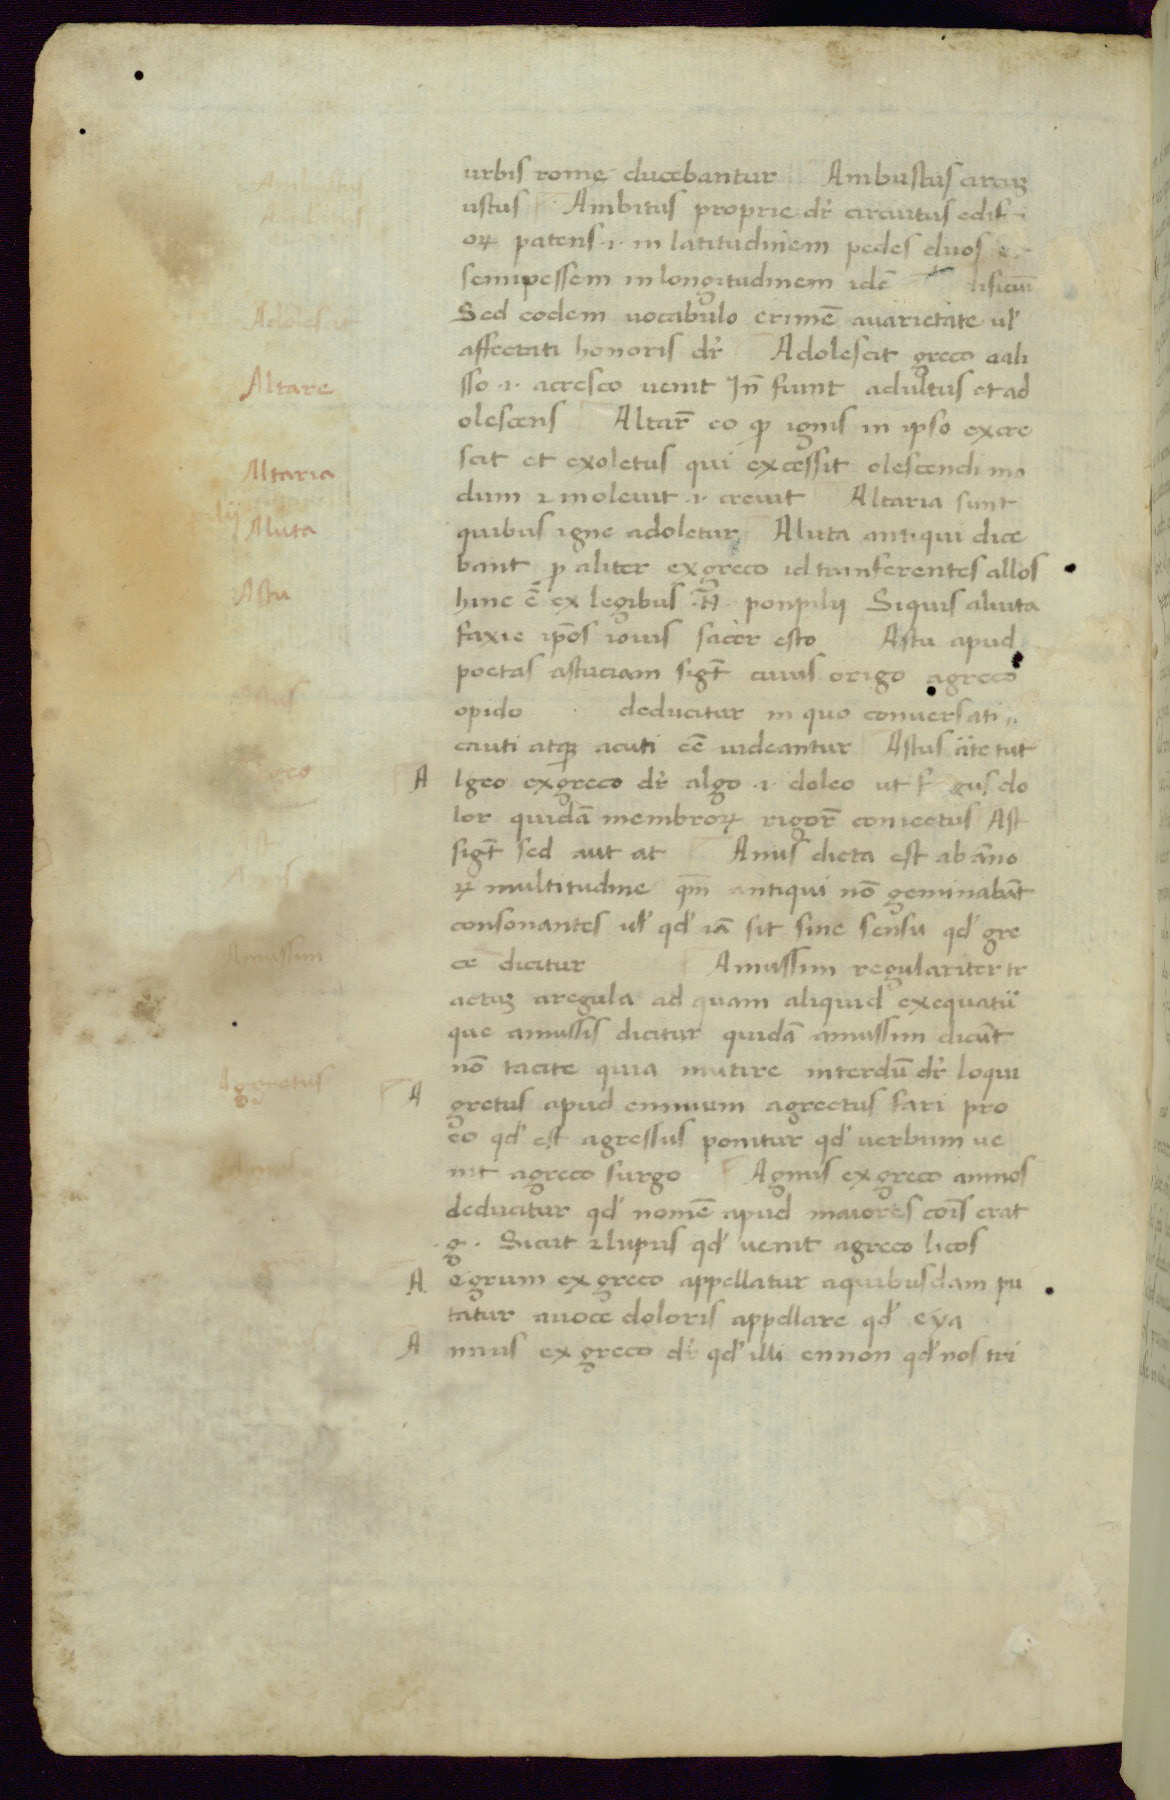 urbis rome ducebantur Ambustus circuꝫ
ustus Ambitus proprie dr̄ circuitus edif
oꝝ patens ·i· in latitudinem pedes duos
semipessem in longitudinem idē
Sed eodem uocabulo crimē auarietate ul̓
affectati honoris dr̄ Adolescit greco aali
Altare
sso ·i· acresco uenit Jn̄ fiunt adultus et ad
olescens Altar̄ eo ꝙ ignis in ipso excre
Altaria
scit et exoletus qui excessit olescendi mo
dum ⁊ inoleuit ·i· creuit Altaria sunt
Aluta
quibus igne adoletur Aluta antiqui dice
bant ꝓ aliter ex greco id tranferentes allos
Astu
hinc ē ex legibus N̄ ponpilij Siquis aliuta
faxie ip̄os iouis sacer esto Astu apud
poetas astuciam sigt̄ cuius origo agreco
opido deducitur in quo conuersati
cauti atqꝫ acuti eē uideantur Astus
A lgeo ex greco dr̄ algo ·i· doleo ut do
lor quidā membroꝝ rigor̄ coniectus Ast
sigt̄ sed aut at Anus dicta est ab āno
ꝝ multitudine qm̄ antiqui nō geminabāt
consonantes ul̓ qd̓ iā sit sine sensu qd̓ gre
Amussim
ce dicitur Amussim regulariter tr
actuꝫ aregula ad quam aliquid exequatū
que amussis dicitur quidā amussim dicūt
nō tacite quia mutire interdū dr̄ loqui
Aggretus
A gretus apud ennium agrectus fari pro
eo qd̓ est agressus ponitur qd̓ uerbum ue
Agnus
nit agreco surgo Agnus ex greco amnos
deducitur qd̓ nomē apud maiores cōis erat
·g· Sicut ⁊ lupus qd̓ uenit agreco licos
A egrum ex greco appellatur aquibusdam pu
tatur auoce doloris appellare qd̓ eya
A nnus ex greco dr̄ qd̓ illi ennon qd̓ nos tri